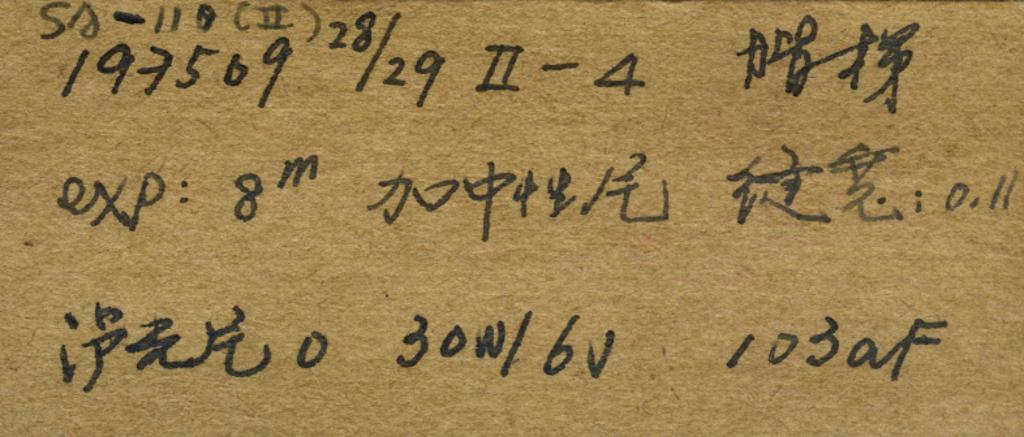 SA-110(II)
197509 28/29 II-4 阶梯
exp: 8m 加中性片 缝宽: 0.11
滤光片 0 30W/6V 103aF